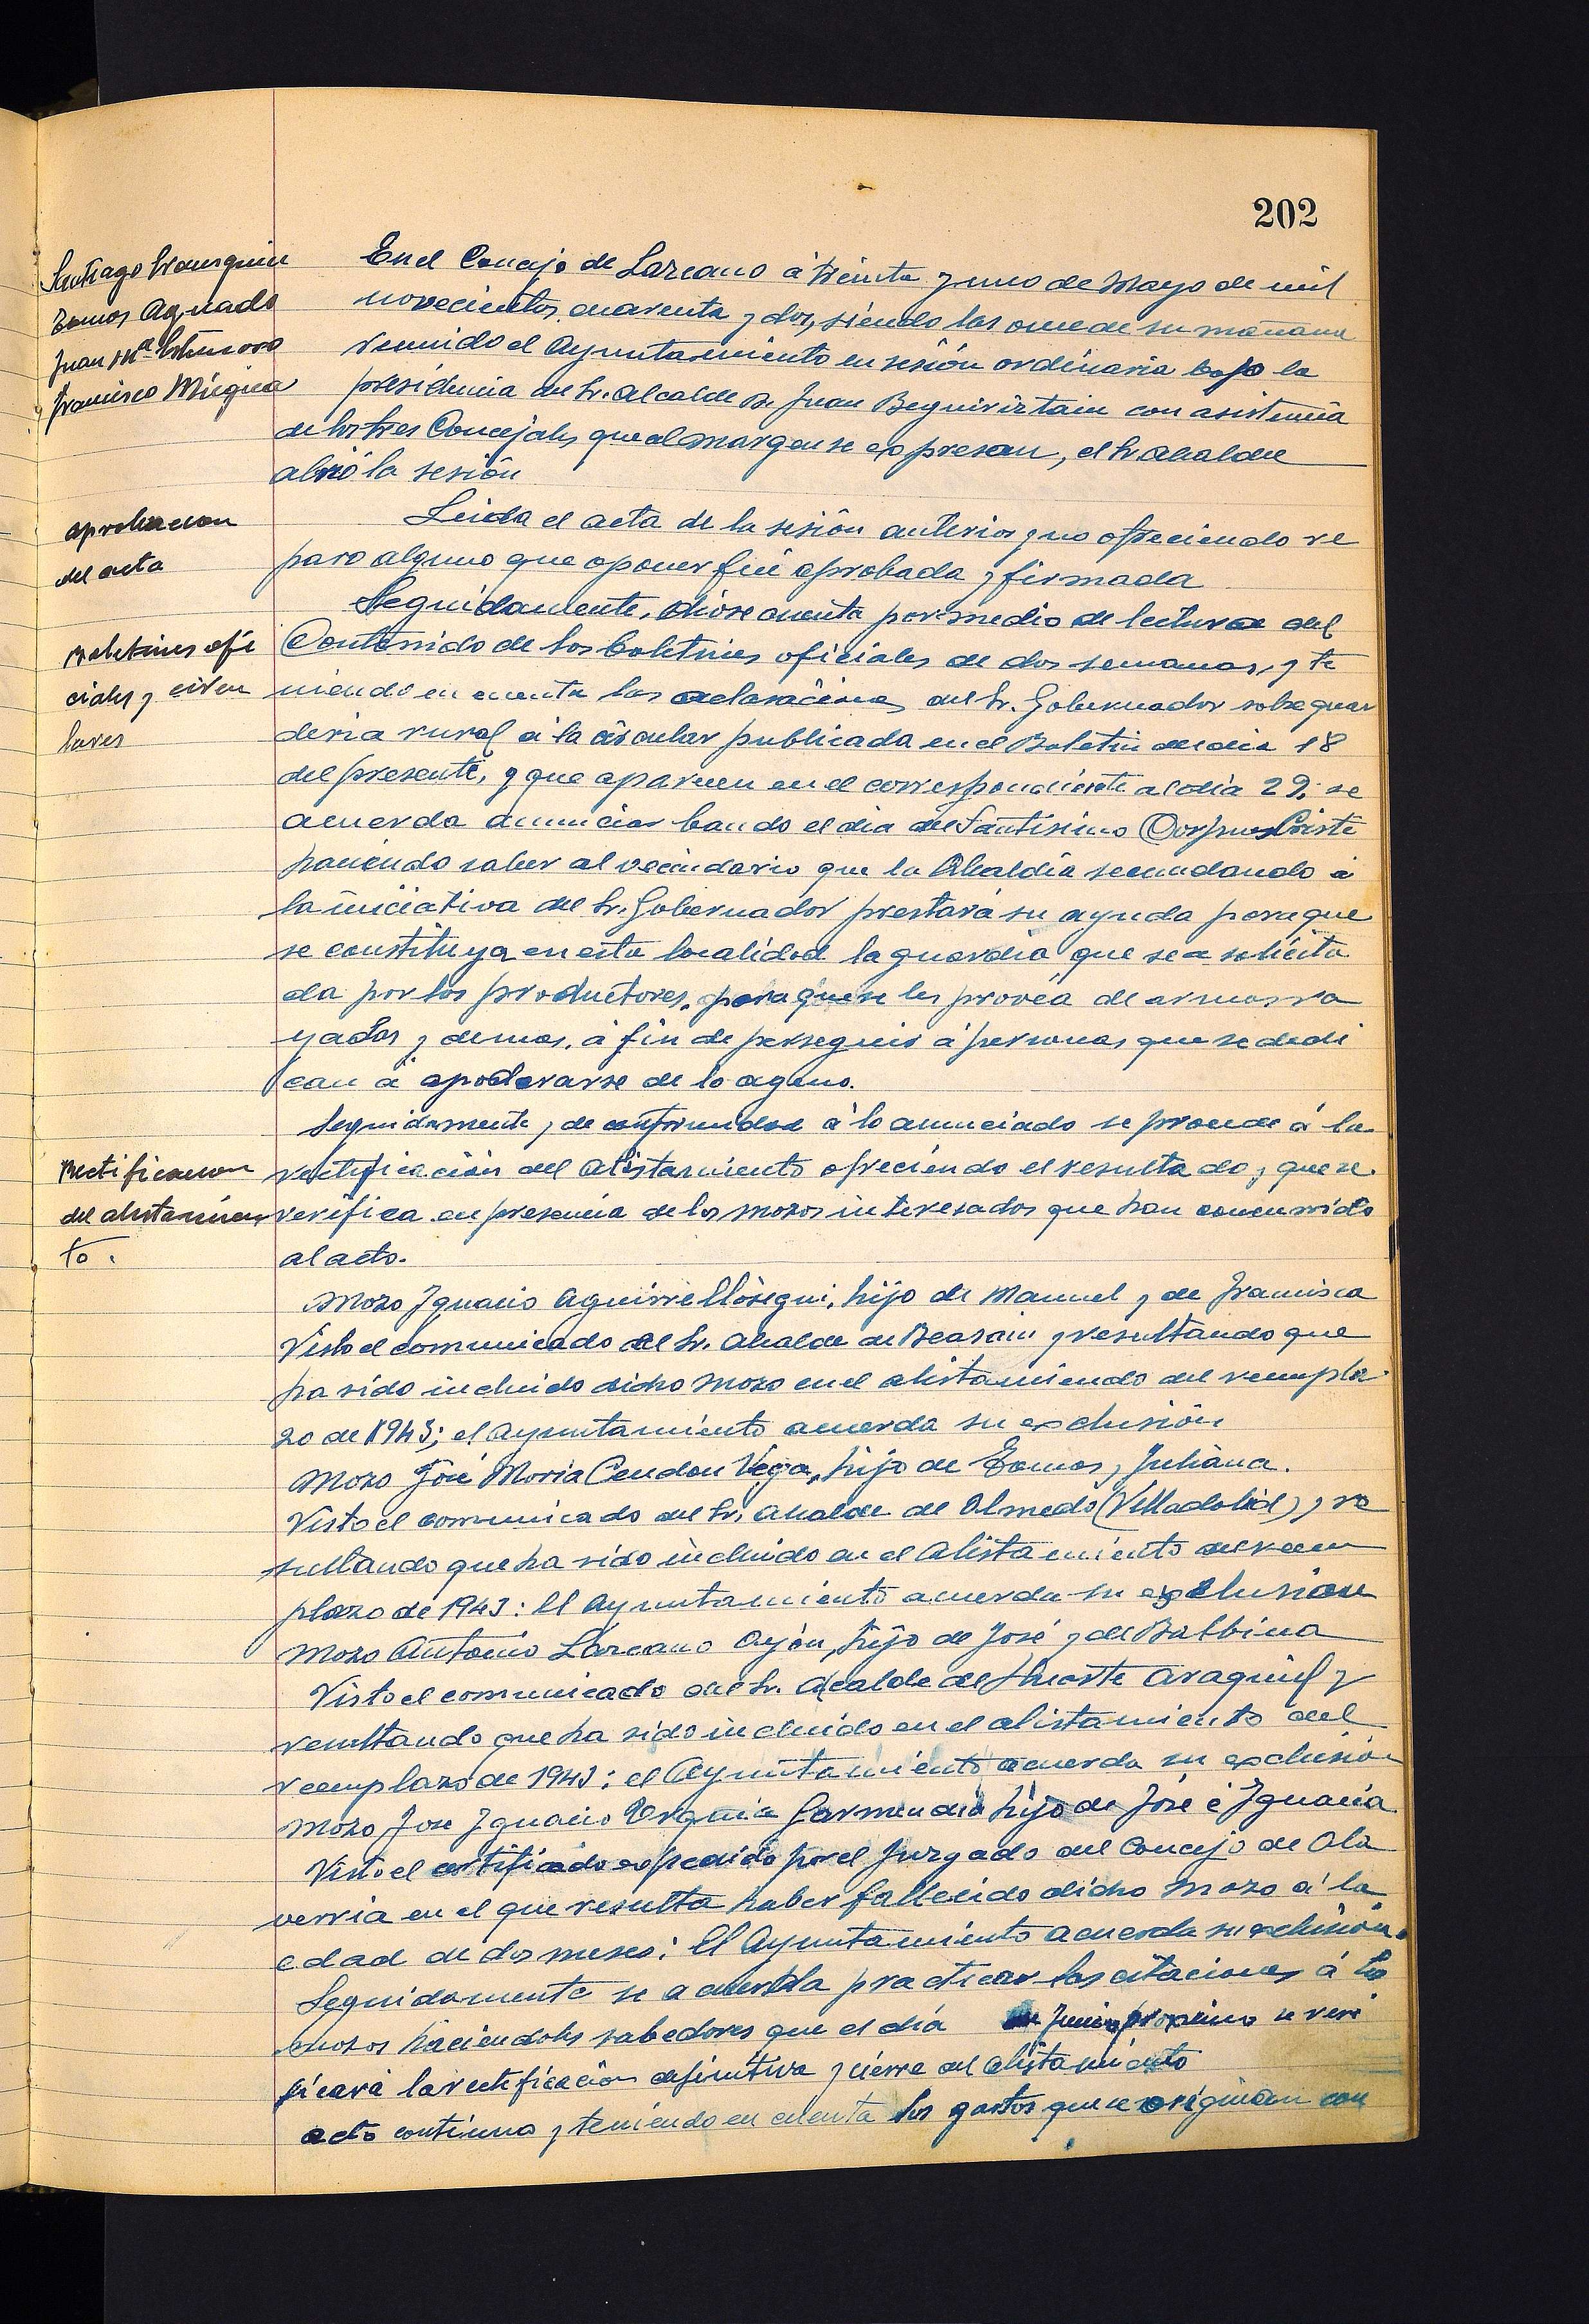 202
Santiago
Tomas Aguado
Juan Mª
Francisco Múgica
En el Concejo de Lazcano á treinta y uno de Mayo de mil
novecientos cuarenta y dos, siendo las once de su mañana
reunido el Ayuntamiento en sesión ordinaria bajo la
presidencia del Sr. Alcalde D. Juan Beguiristain con asistencia
de los tres Concejales que al margen se expresan, el Sr. Alcalde
abrió la sesión
aprobacion
del acta
Leida el acta de la sesión anterior y no ofreciendo re
paro alguno que oponer fué aprobada y firmada
Boletines ofi
ciales y circu
lares
Seguidamente, diose cuenta por medio de lectura del
Contenido de los boletines oficiales de dos semanas, y te
niendo en cuenta las aclaraciones del Sr. Gobernador sobre guar
deria rural á la circular publicada en el Boletin del dia 18
del presente, y que aparecen en el correspondiente al dia 29; se
acuerda anunciar bando el dia del Santísimo Corpus Criste
haciendo saber al vecindario que la Alcaldía secundando á
la iniciativa del Sr. Gobernador prestará su ayuda para que
se constituya en esta localidad la guardia que sea solicita
da por los productores, para que se les provea de armas ra
yadas y demas, á fin de perseguir á personas que se dedi
can á apoderarse de lo ageno.
Rectificacion
del alistamien
to.
Seguidamente y de conformidad á lo anunciado se procede á la
rectificación del Alistamiento ofreciendo el resultado, que se
verifica en presencia de los mozos interesados que han concurrido
al acto.
Mozo Ignacio Aguirre Ilósegui, hijo de Manuel y de Francisca
Visto el comunicado del Sr. Alcalde de Beasain y resultando que
ha sido incluido dicho mozo en el alistamiendo del reempla
zo de 1943; el Ayuntamiento acuerda su exclusión
Mozo José Maria Cendon Vega, hijo de Tomas y Juliana.
Visto el comunicado del Sr. Alcalde de Olmedo (Villadolid), y re
sultando que ha sido incluido en el Alistamiento del reem
plazo de 1943: El Ayuntamiento acuerda su exclusion
Mozo Antonio Lazcano Ayón, hijo de José y de Balbina
Visto el comunicado del Sr. Alcalde de Huarte Araquil y
resultando que ha sido incluido en el alistamiento del
reemplazo de 1943: el Ayuntamiento acuerda su exclusión
Mozo Jose Ignacio Urquia Garmendia hijo de José é Ignacia
Visto el certificado expedido por el Juzgado del Concejo de Ola
verria en el que resulta haber fallecido dicho mozo á la
edad de dos meses: El Ayuntamiento acuerda su exclusión.
Seguidamente se acuerda practicar las citaciones á los
mozos haciendoles sabedores que el día de Junio proximo se veri
ficará la rectificación definitiva y cierre del Alistamiento
acto continuo y teniendo en cuenta los gastos que se originan con